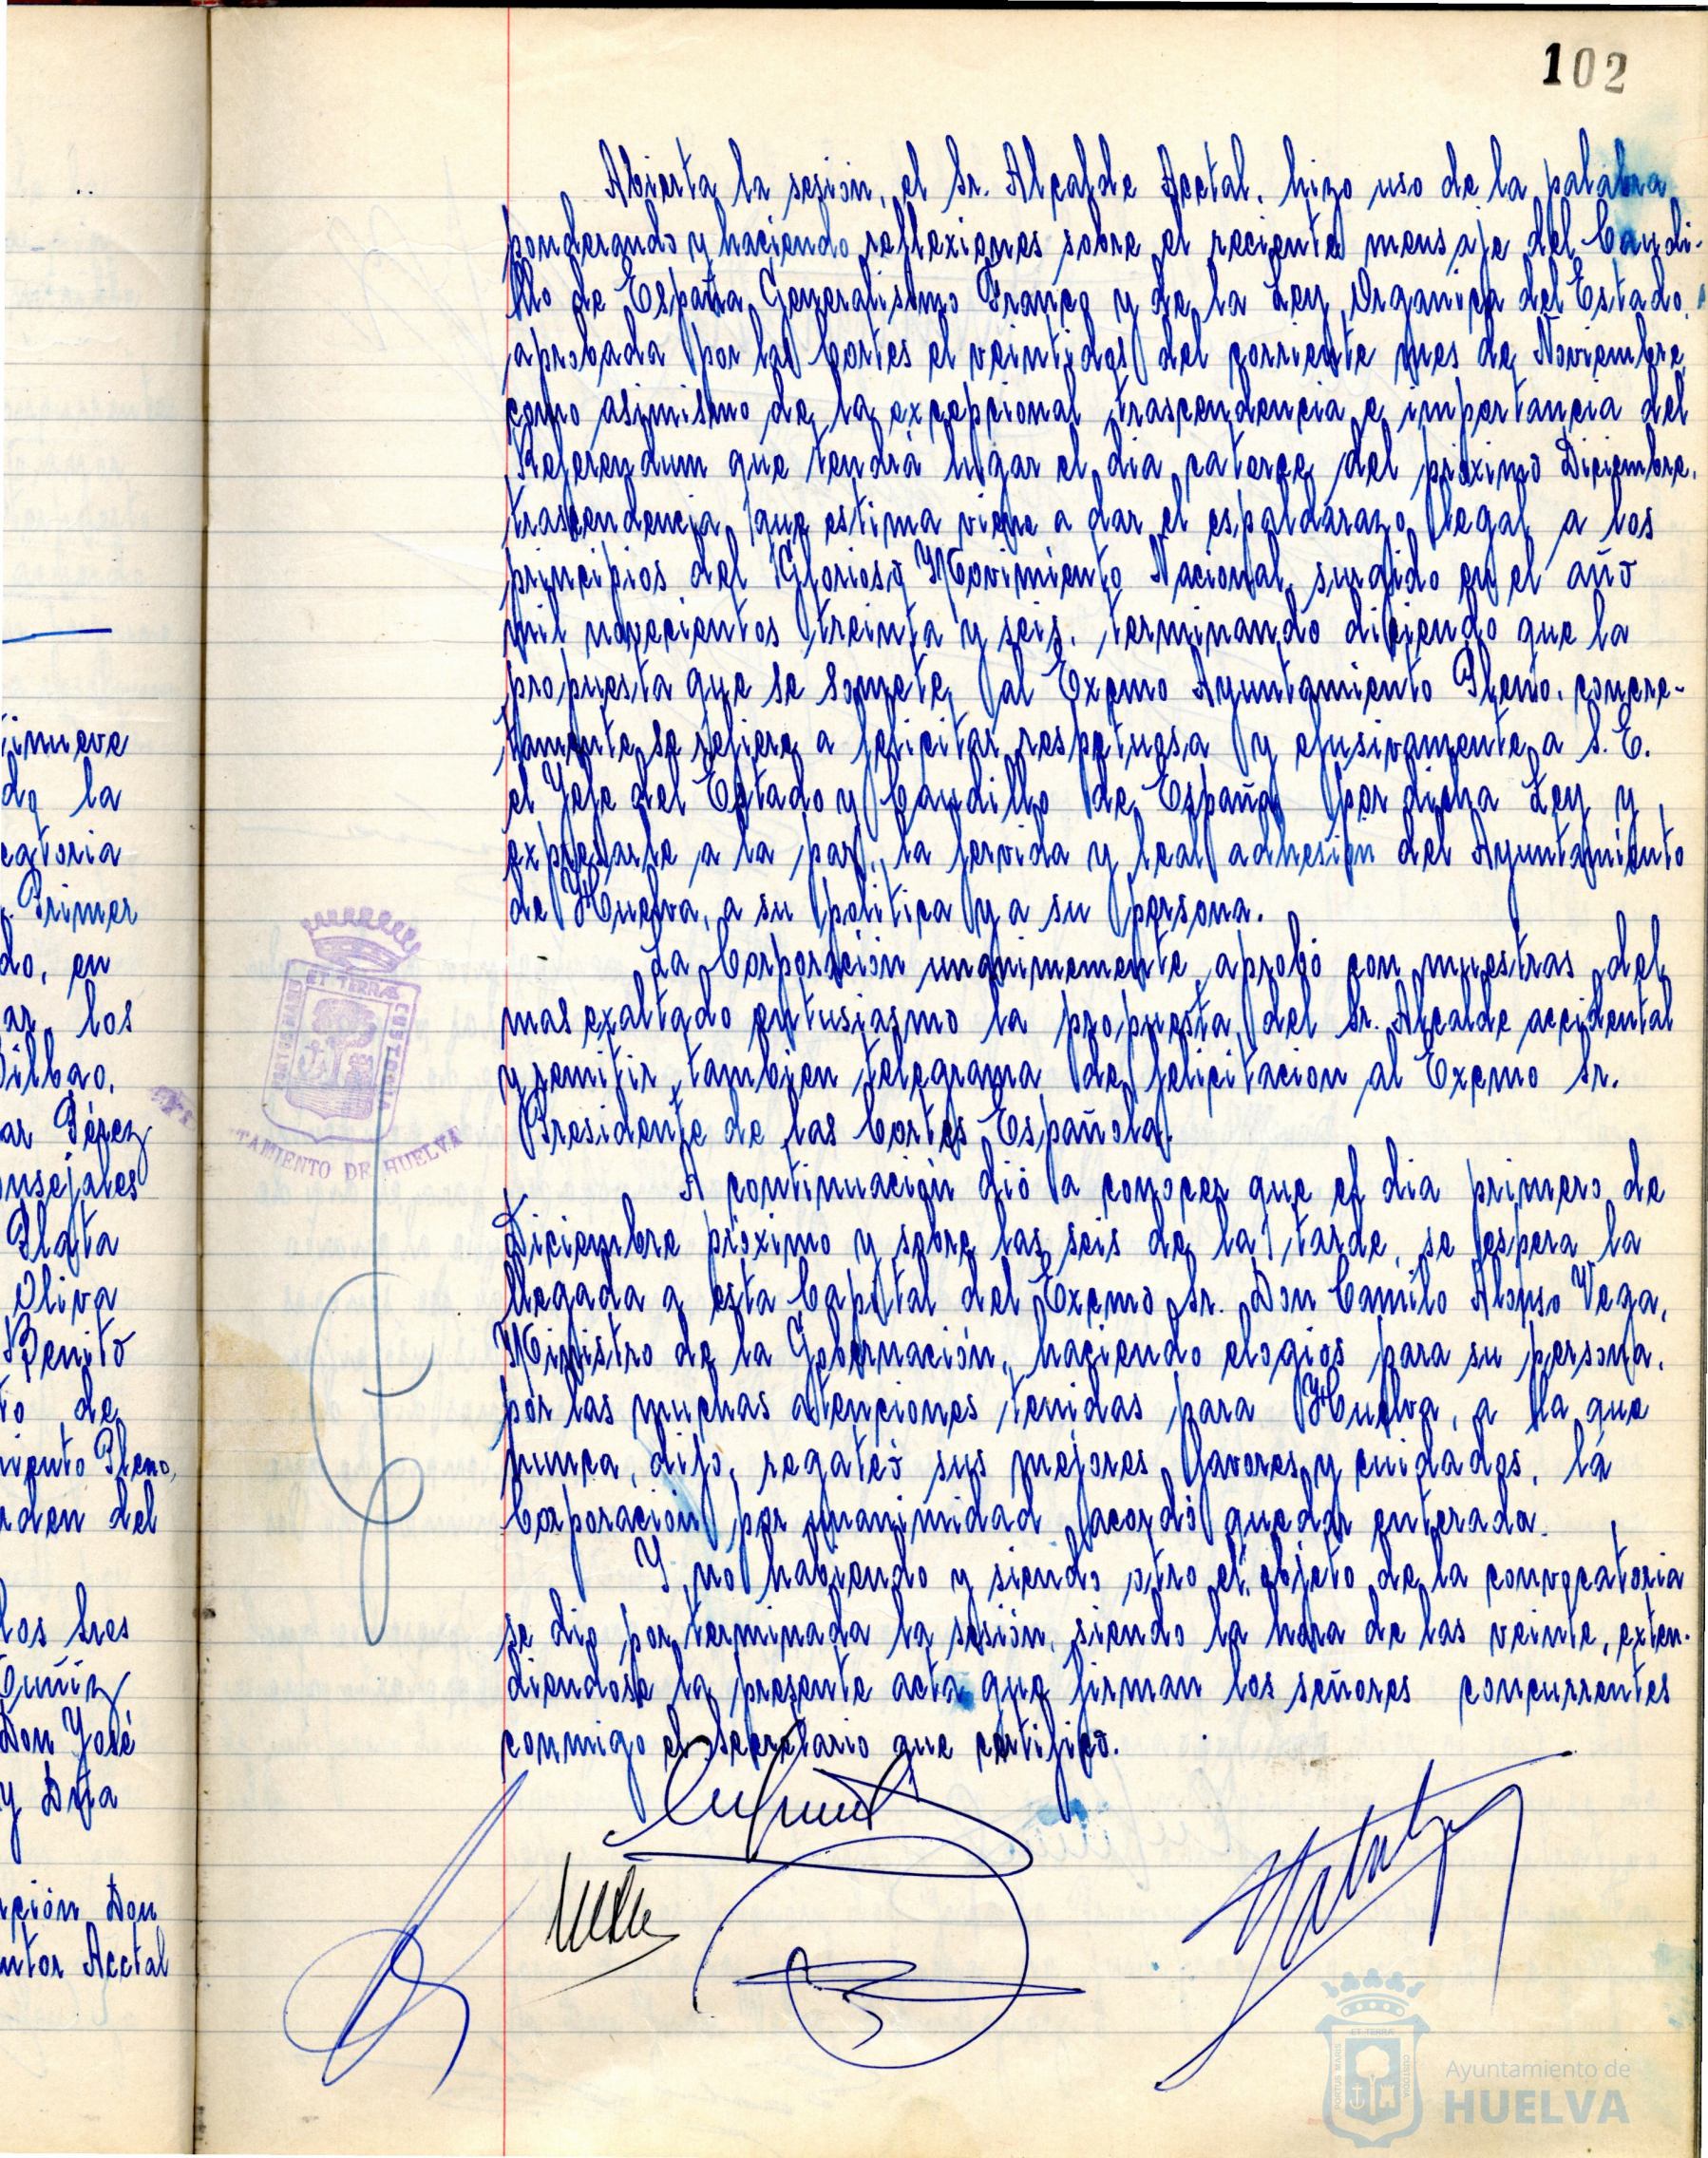 102
Abierta la sesión, el Sr. Alcalde Acctal. hizo uso de la palabra
ponderando y haciendo reflexiones sobre el reciente mensaje del Caudi-
llo de España Generalisimo Franco y de la Ley Organica del Estado,
aprobada por las Cortes el veintidos del corriente mes de Noviembre,
como asimismo de la excepcional trascendencia e importancia del
Referendum que tendrá lugar el dia catorce del próximo Diciembre,
trascendencia que estima viene a dar el espaldarazo legal a los
principios del Glorioso Movimiento Nacional, surgido en el año
mil novecientos treinta y seis, terminando diciendo que la
propuesta que se somete al Excmo Ayuntamiento Pleno, concre-
tamente se refiere a felicitar respetuosa y efusivamente a S. E.
el Jefe del Estado y Caudillo de España por dicha Ley y
expresarle a la par, la fervida y leal adhesión del Ayuntamiento
de Huelva, a su politica y a su persona.
La Corporación unanimemente aprobó con muestras del
mas exaltado entusiasmo la propuesta del Sr. Alcalde accidental
y remitir tambien telegrama de felicitacion al Excmo Sr.
Presidente de las Cortes Española.
A continuación dió a conocer que el dia primero de
Diciembre próximo y sobre las seis de la tarde, se espera la
llegada a esta Capital del Excmo Sr. Don Camilo Alonso Vega,
Ministro de la Gobernación, haciendo elogios para su persona,
por las muchas atenciones tenidas para Huelva, a la que
nunca, dijo, regateó sus mejores favores y cuidados, la
Corporación por unanimidad acordó quedar enterada.
Y no habiendo y siendo otro el objeto de la convocatoria
se dio por terminada la sesión, siendo la hora de las veinte, exten-
diendose la presente acta que firman los señores concurrentes
conmigo el Secretario que certifico.
inueve
do la
catoria
Primer
do, en
ar los
Bilbao,
ar Pérez
onsejales
Plata
Oliva
Benito
to de
miento Pleno,
rden del
los Sres
Don José
y Dña
pción Don
ntor Acctal
ET TERRÆ CUSTODIA
TAMIENTO DE HUELVA
Ayuntamiento de
HUELVA